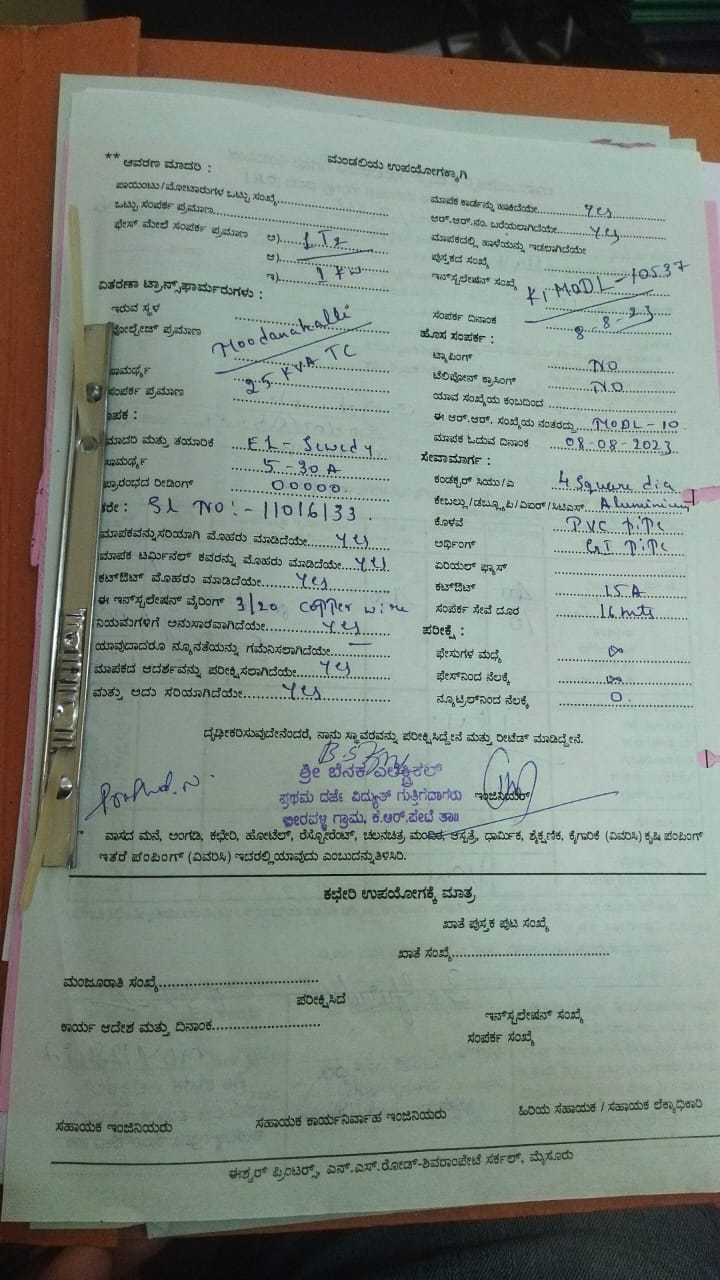 ಮಂಡಲಿಯ ಉಪಯೋಗಕ್ಕಾಗಿ
** ಆವರಣ ಮಾದರಿ :
ಪಾಯಿಂಟು/ಮೋಟಾರುಗಳ ಒಟ್ಟು ಸಂಖ್ಯೆ
ಒಟ್ಟು ಸಂಪರ್ಕ ಪ್ರಮಾಣ
ಫೇಸ್ ಮೇಲೆ ಸಂಪರ್ಕ ಪ್ರಮಾಣ ಅ)
ಆ)
ಇ) 1 KW
ವಿತರಣಾ ಟ್ರಾನ್ಸ್‌ಫಾರ್ಮರುಗಳು :
ಇರುವ ಸ್ಥಳ Moodanahalli
ವೋಲ್ಟೇಜ್ ಪ್ರಮಾಣ
ಸಾಮರ್ಥ್ಯ 25 KVA TC
ಸಂಪರ್ಕ ಪ್ರಮಾಣ
ಮಾಪಕ :
ಮಾದರಿ ಮತ್ತು ತಯಾರಿಕೆ EL - Sewedy
ಸಾಮರ್ಥ್ಯ 5-30 A
ಪ್ರಾರಂಭದ ರೀಡಿಂಗ್ 00000.
ಕರೇ : SL NO:- 11016133.
ಮಾಪಕವನ್ನು ಸರಿಯಾಗಿ ಮೊಹರು ಮಾಡಿದೆಯೇ Yes
ಮಾಪಕ ಟರ್ಮಿನಲ್ ಕವರನ್ನು ಮೊಹರು ಮಾಡಿದೆಯೇ Yes
ಕಟ್‌ಔಟ್ ಮೊಹರು ಮಾಡಿದೆಯೇ Yes
ಈ ಇನ್‌ಸ್ಟಲೇಷನ್ ವೈರಿಂಗ್ 3/20 copper wire
ನಿಯಮಗಳಿಗೆ ಅನುಸಾರವಾಗಿದೆಯೇ Yes
ಯಾವುದಾದರೂ ನ್ಯೂನತೆಯನ್ನು ಗಮನಿಸಲಾಗಿದೆಯೇ —
ಮಾಪಕದ ಆದರ್ಶವನ್ನು ಪರೀಕ್ಷಿಸಲಾಗಿದೆಯೇ Yes
ಮತ್ತು ಅದು ಸರಿಯಾಗಿದೆಯೇ Yes
ಮಾಪಕ ಕಾರ್ಡನ್ನು ಹಾಕಿದೆಯೇ Yes
ಆರ್.ಆರ್.ನಂ. ಬರೆಯಲಾಗಿದೆಯೇ Yes
ಮಾಪಕದಲ್ಲಿ ಹಾಳೆಯನ್ನು ಇಡಲಾಗಿದೆಯೇ
ಪುಸ್ತಕದ ಸಂಖ್ಯೆ
ಇನ್‌ಸ್ಟಲೇಷನ್ ಸಂಖ್ಯೆ KI MODL-10537
ಸಂಪರ್ಕ ದಿನಾಂಕ 8-8-23
ಹೊಸ ಸಂಪರ್ಕ :
ಟ್ಯಾಪಿಂಗ್ NO
ಟೆಲಿಪೋನ್ ಕ್ರಾಸಿಂಗ್ NO
ಯಾವ ಸಂಖ್ಯೆಯ ಕಂಬದಿಂದ
ಈ ಆರ್.ಆರ್. ಸಂಖ್ಯೆಯ ನಂತರದ್ದು MODL-10
ಮಾಪಕ ಓದುವ ದಿನಾಂಕ 08-08-2023
ಸೇವಾಮಾರ್ಗ :
ಕಂಡಕ್ಟರ್ ಸಿಯು/ಎ 4 Square dia
ಕೇಬಲ್ಲು/ಡಬ್ಲ್ಯೂಪಿ/ಏಐರ್/ಸಿಟಿಎಸ್ Aluminium
ಕೊಳವೆ PVC pipe
ಅರ್ಥಿಂಗ್ GI pipe
ಏರಿಯಲ್ ಫ್ಯಾಸ್
ಕಟ್‌ಔಟ್ 15 A
ಸಂಪರ್ಕ ಸೇವೆ ದೂರ 16 mts
ಪರೀಕ್ಷೆ :
ಫೇಸುಗಳ ಮಧ್ಯೆ ∞
ಫೇಸ್‌ನಿಂದ ನೆಲಕ್ಕೆ ∞
ನ್ಯೂಟ್ರಿಲ್‌ನಿಂದ ನೆಲಕ್ಕೆ 0
ದೃಢೀಕರಿಸುವುದೇನೆಂದರೆ, ನಾನು ಸ್ಥಾವರವನ್ನು ಪರೀಕ್ಷಿಸಿದ್ದೇನೆ ಮತ್ತು ರೀಟೆಡ್ ಮಾಡಿದ್ದೇನೆ.
ಶ್ರೀ ಬೆನಕ ಎಲೆಕ್ಟ್ರಿಕಲ್
ಪ್ರಥಮ ದರ್ಜೆ ವಿದ್ಯುತ್ ಗುತ್ತಿಗೆದಾರರು ಇಂಜಿನಿಯರ್
ಗ್ರಾಮ, ಕೆ.ಆರ್.ಪೇಟೆ ತಾ॥
* ವಾಸದ ಮನೆ, ಅಂಗಡಿ, ಕಛೇರಿ, ಹೋಟೆಲ್, ರೆಸ್ಟೋರೆಂಟ್, ಚಲನಚಿತ್ರ ಮಂದಿರ, ಆಸ್ಪತ್ರೆ, ಧಾರ್ಮಿಕ, ಶೈಕ್ಷಣಿಕ, ಕೈಗಾರಿಕೆ (ವಿವರಿಸಿ) ಕೃಷಿ ಪಂಪಿಂಗ್
ಇತರೆ ಪಂಪಿಂಗ್ (ವಿವರಿಸಿ) ಇದರಲ್ಲಿ ಯಾವುದು ಎಂಬುದನ್ನು ತಿಳಿಸಿರಿ.
ಕಛೇರಿ ಉಪಯೋಗಕ್ಕೆ ಮಾತ್ರ
ಖಾತೆ ಪುಸ್ತಕ ಪುಟ ಸಂಖ್ಯೆ
ಖಾತೆ ಸಂಖ್ಯೆ
ಮಂಜೂರಾತಿ ಸಂಖ್ಯೆ
ಪರೀಕ್ಷಿಸಿದೆ
ಕಾರ್ಯ ಆದೇಶ ಮತ್ತು ದಿನಾಂಕ
ಇನ್‌ಸ್ಟಲೇಷನ್ ಸಂಖ್ಯೆ
ಸಂಪರ್ಕ ಸಂಖ್ಯೆ
ಸಹಾಯಕ ಇಂಜಿನಿಯರು ಸಹಾಯಕ ಕಾರ್ಯನಿರ್ವಾಹ ಇಂಜಿನಿಯರು ಹಿರಿಯ ಸಹಾಯಕ / ಸಹಾಯಕ ಲೆಕ್ಕಾಧಿಕಾರಿ
ಈಶ್ವರ್ ಪ್ರಿಂಟರ್ಸ್, ಎನ್.ಎಸ್.ರೋಡ್-ಶಿವರಾಂಪೇಟೆ ಸರ್ಕಲ್, ಮೈಸೂರು